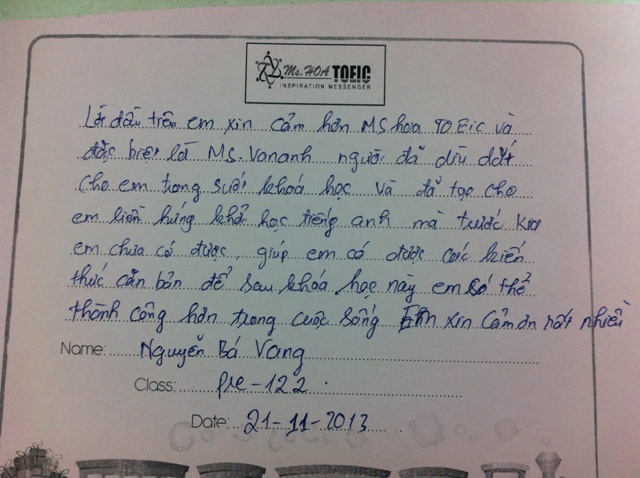 Ms. HOA TOEIC
INSPIRATION MESSENGER
Lời đầu tiên em xin cảm hơn MS hoa TOEic và
đặc biệt là MS. Vananh người đã dìu dắt
cho em trong suốt khoá học và đã tạo cho
em liền hứng khởi học tiếng anh mà trước kia
em chưa có được, giúp em có được các kiến
thức căn bản để sau khóa học này em có thể
thành công hơn trong cuộc sống Em xin cảm ơn rất nhiều
Name: Nguyễn Bá Vang
Class: pre-122.
Date: 21-11-2013